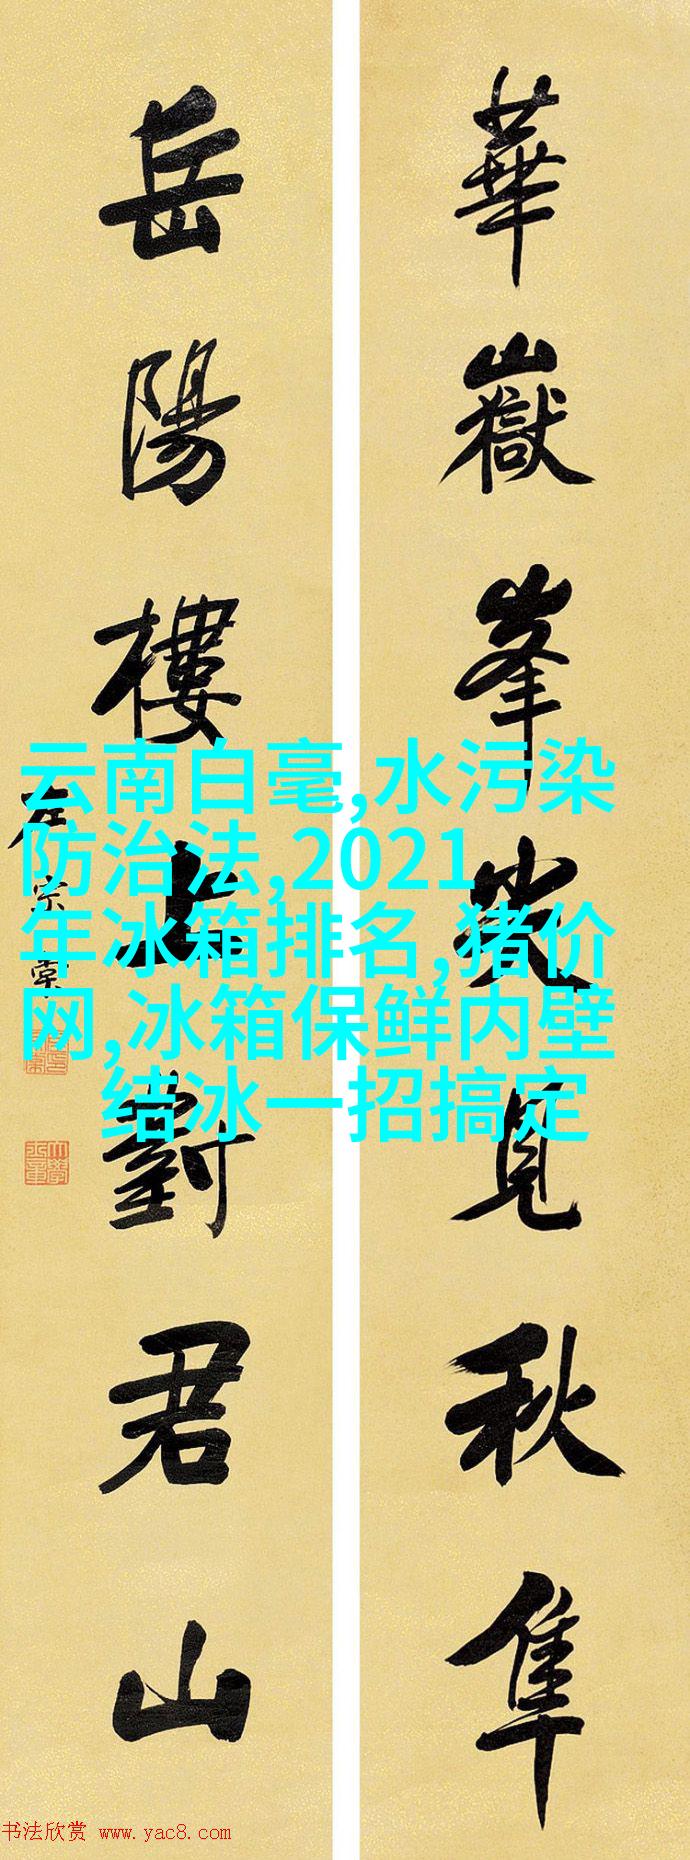 華嶽峯尖見秋隼
岳陽樓上對君山
左宗棠
云南白毫,水污染
防治法,2021
年冰箱排名,猪价
网,冰箱保鲜内壁
结冰一招搞定
书法欣赏 www.yac8.com